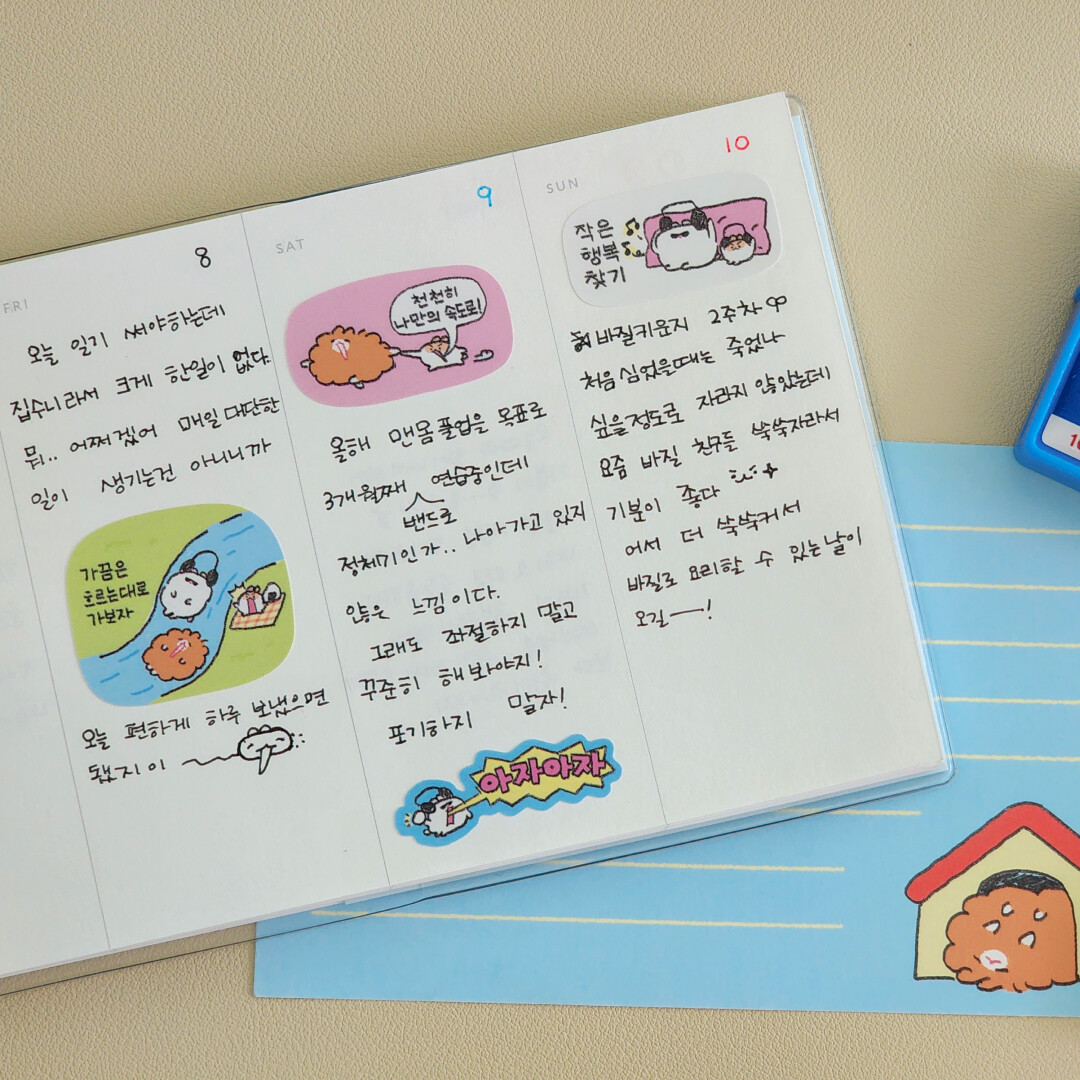 FRI
8
오늘 일기 써야하는데
집수니라서 크게 한일이 없다.
뭐.. 어쩌겠어 매일 대단한
일이 생기는건 아니니까
가끔은
흐르는대로
가보자
오늘 편하게 하루 보냈으면
됐지 이
SAT
9
천천히
나만의 속도로!
올해 맨몸풀업을 목표로
3개월째 밴드로 연습중인데
정체기인가.. 나아가고 있지
않은 느낌이다.
그래도 좌절하지 말고
꾸준히 해봐야지!
포기하지 말자!
아자아자
SUN
10
작은
행복
찾기
바질키운지 2주차
처음 심었을때는 죽었나
싶을정도로 자라지 않았는데
요즘 바질 친구들 쑥쑥자라서
기분이 좋다
어서 더 쑥쑥커서
바질로 요리할 수 있는날이
오길ㅡ!